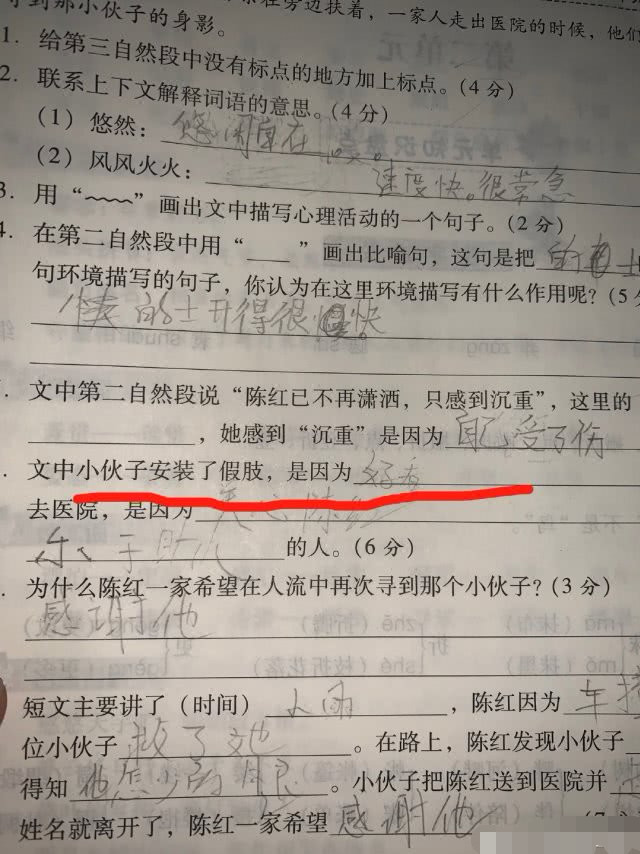 寻到那小伙子的身影。
在旁边扶着，一家人走出医院的时候，他们
1. 给第三自然段中没有标点的地方加上标点。(4分)
2. 联系上下文解释词语的意思。(4分)
(1) 悠然：悠闲自在
(2) 风风火火：速度快。很常急
3. 用“﹏﹏”画出文中描写心理活动的一个句子。(2分)
4. 在第二自然段中用“____”画出比喻句，这句是把的士
句环境描写的句子，你认为在这里环境描写有什么作用呢？(5分
的士开得很快
. 文中第二自然段说“陈红已不再潇洒，只感到沉重”，这里的
，她感到“沉重”是因为 受了伤
. 文中小伙子安装了假肢，是因为好看
去医院，是因为关心陈红
乐于助人的人。(6分)
. 为什么陈红一家希望在人流中再次寻到那个小伙子？(3分)
感谢他
短文主要讲了（时间）大雨，陈红因为车
位小伙子救了她。在路上，陈红发现小伙子
得知他。小伙子把陈红送到医院并
姓名就离开了，陈红一家希望感谢他